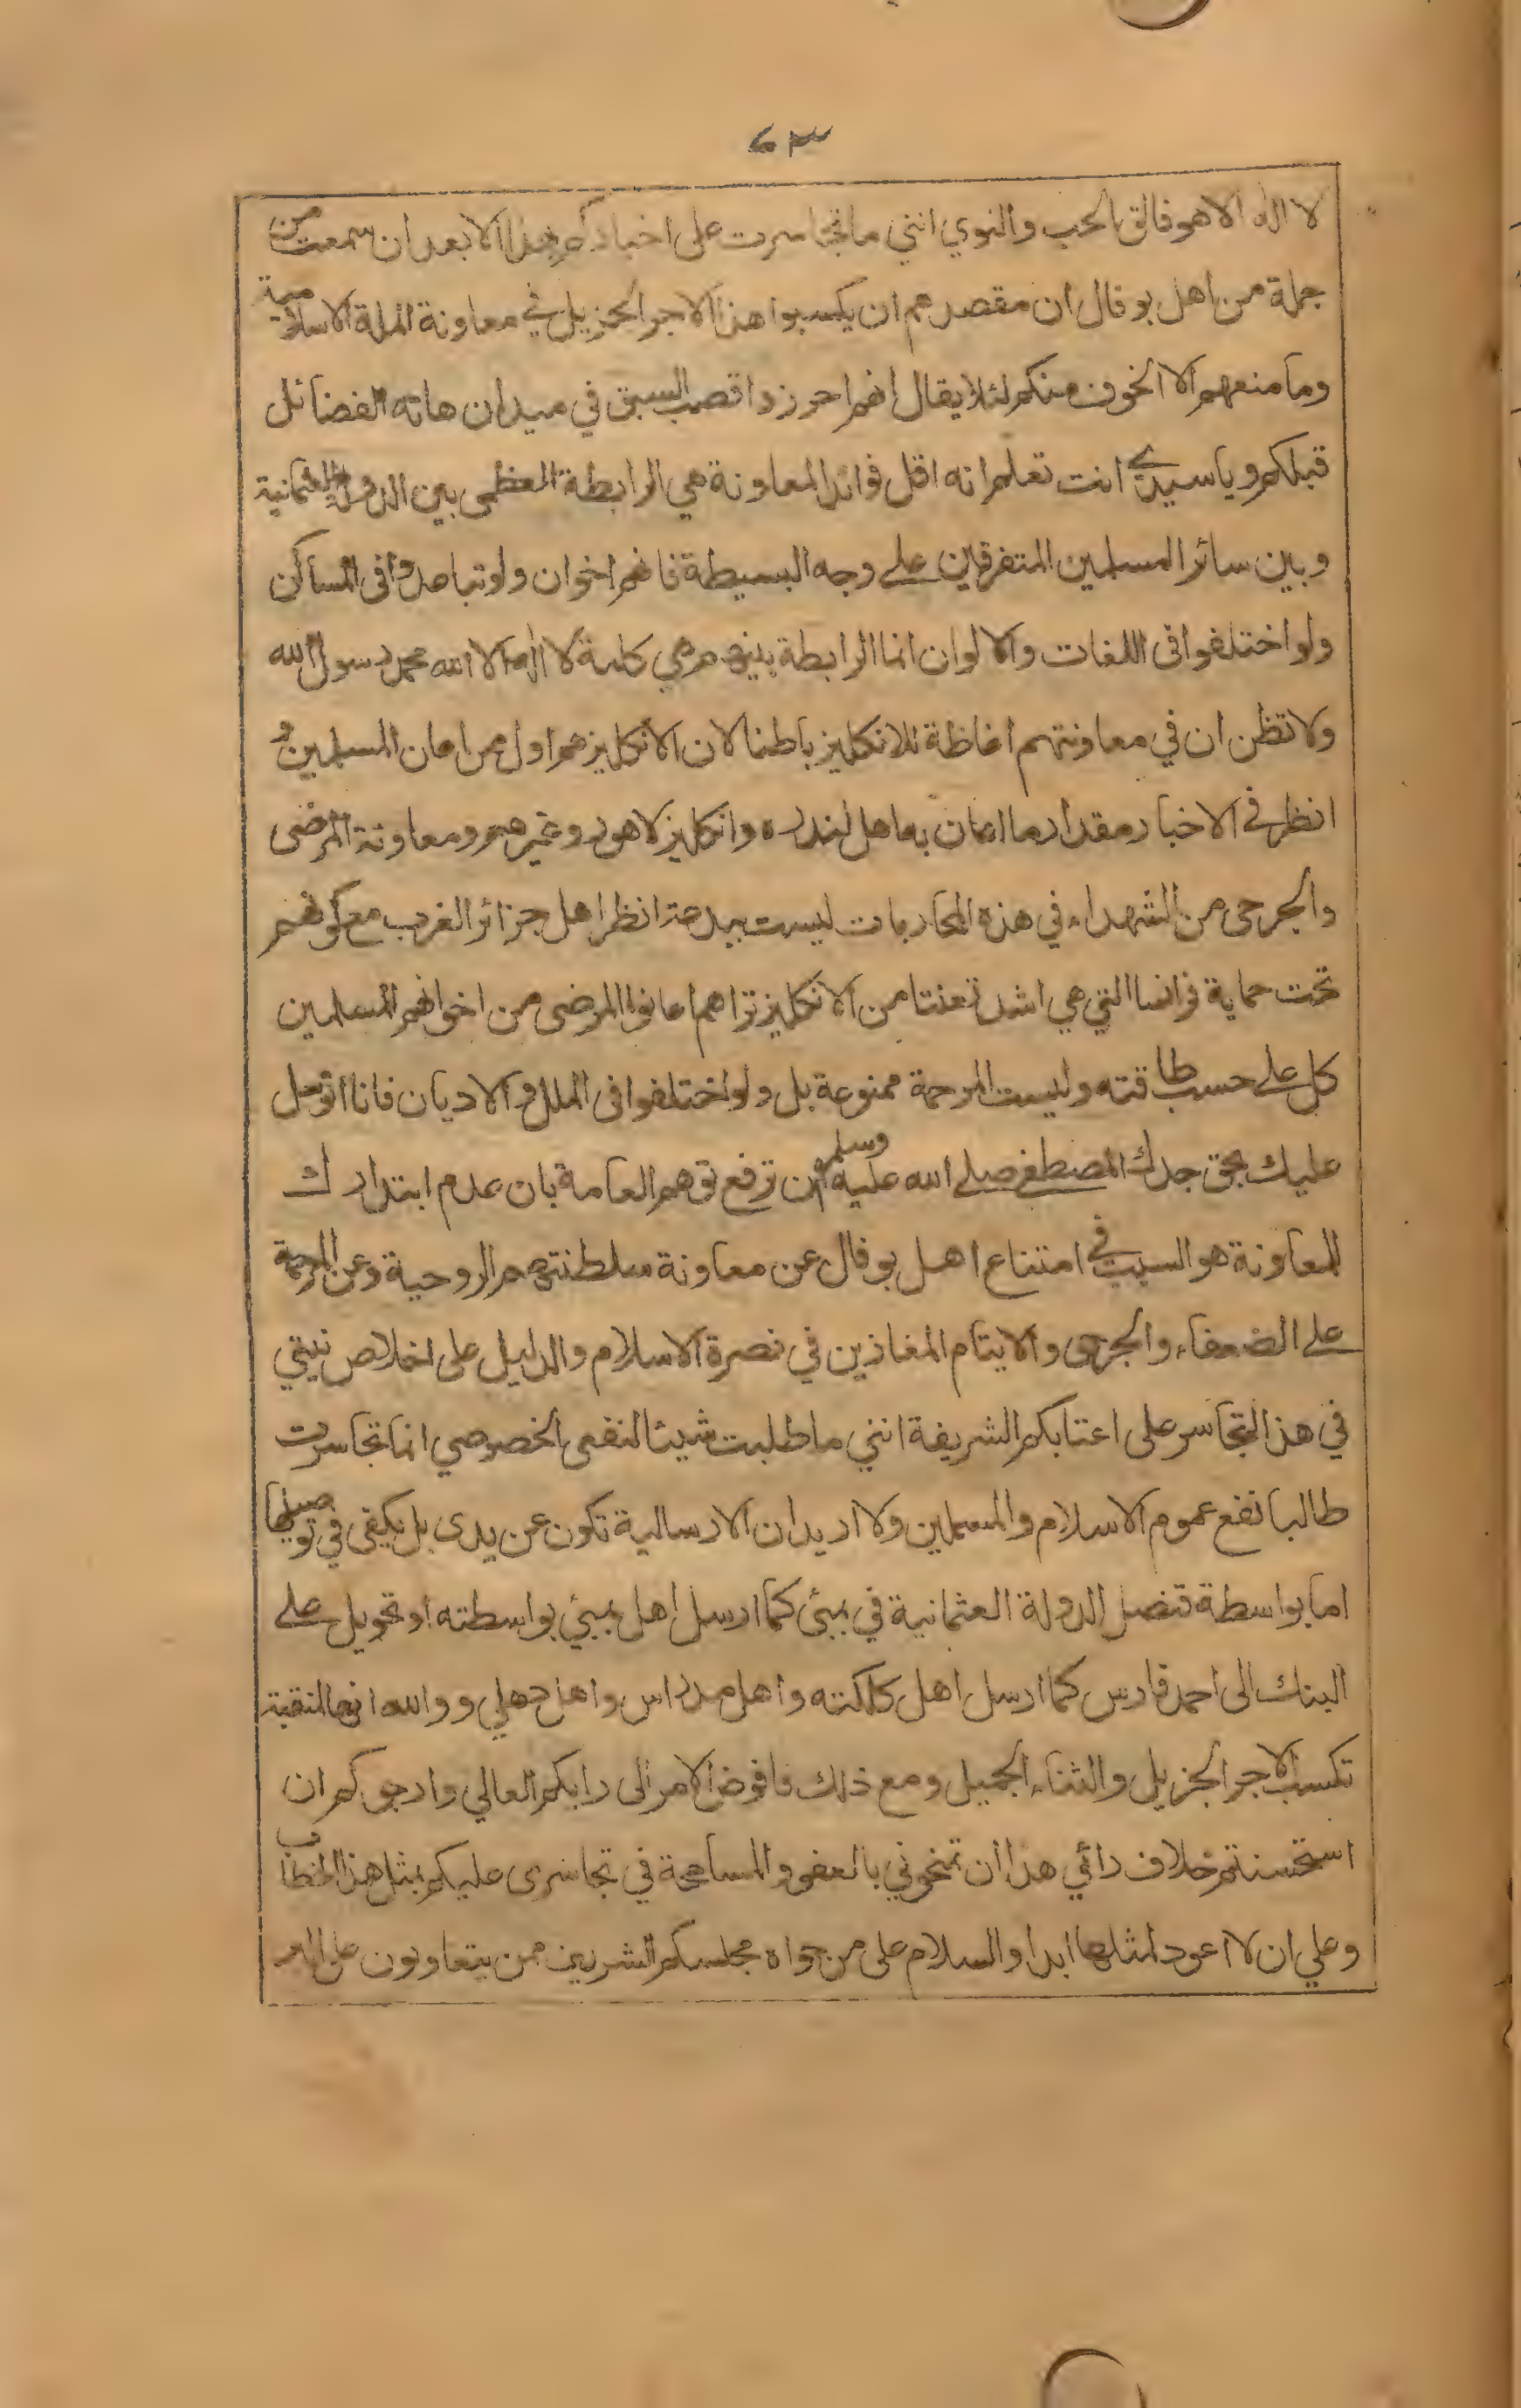 ٤٣
لا اله الا هو فالق الحب والنوي انني ما تجاسرت على اخباركم بهذا الا بعد ان سمعت من
جملة من اهل بوفال ان مقصدهم ان يكسبوا هذا الاجر الجزيل في معاونة الملة الاسلامية
وما منعهم الا الخوف منكم لئلا يقال انهم احرزوا قصب السبق في ميدان هاته الفضائل
قبلكم ويا سيدي انت تعلم انه اقل فوائد المعاونة هي الرابطة العظمى بين الدولة العثمانية
وبين سائر المسلمين المتفرقين على وجه البسيطة فانهم اخوان ولو تباعدوا فى المساكن
ولو اختلفوا فى اللغات والالوان انما الرابطة بينهم هي كلمة لا اله الا الله محمد رسول الله
ولا تظن ان في معاونتهم اغاظة للانكليز باطنا لان الانكليز هم اول من اعان المسلمين
انظر في الاخبار مقدار ما اعان به اهل لندره وانكليز لاهور وغيرهم ومعاونة المرضى
والجرحى من الشهداء في هذه المحاربات ليست ببدعة انظر اهل جزائر الغرب مع كونهم
تحت حماية فرانسا التي هي اشد تعنتا من الانكليز تراهم اعانوا المرضى من اخوانهم المسلمين
كل على حسب طاقته وليست المرحمة ممنوعة بل ولو اختلفوا فى الملل والاديان فانا اتوسل
عليك بحق جدك المصطفى صلى الله عليه وسلم ان ترفع توهم العامة بان عدم ابتدارك
للمعاونة هو السبب في امتناع اهل بوفال عن معاونة سلطنتهم الروحية وعن المرحمة
على الضعفاء والجرحى والايتام المغازين في نصرة الاسلام والدليل على اخلاص نيتي
في هذا التجاسر على اعتابكم الشريفة انني ما طلبت شيئا لنفعى الخصوصي انما تجاسرت
طالبا نفع عموم الاسلام والمسلمين ولا اريد ان الارسالية تكون عن يدى بل يكفى في توصيلها
اما بواسطة قنصل الدولة العثمانية في بمبئ كما ارسل اهل بمبئ بواسطته او تحويل على
البنك الى احمد فارس كما ارسل اهل كلكته واهل مدراس واهل دهلي ووالله انها لمنقبة
تكسب الاجر الجزيل والثناء الجميل ومع ذلك فافوض الامر الى رايكم العالي وارجوكم ان
استحسنتم خلاف رائي هذا ان تمنحوني بالعفو والمسامحة في تجاسرى عليكم بمثل هذا الخطاب
وعلي ان لا اعود لمثلها ابدا والسلام على من حواه مجلسكم الشريف ممن يتعاونون على البر